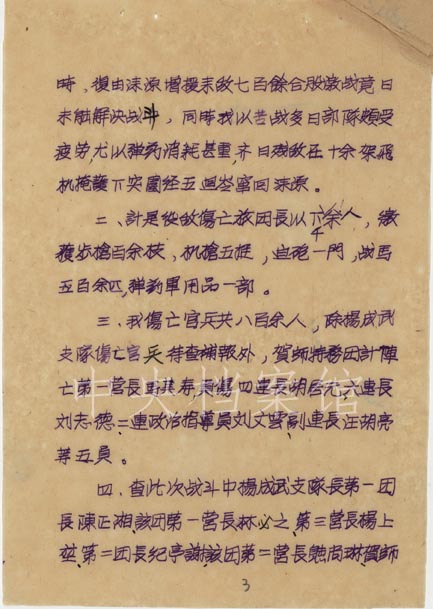 時，復由涞源增援来敌七百餘合股激战竟日
未能解决战斗，同時我以苦战多日部隊頗受
疲劳，尤以弹药消耗甚重，齐日残敌在十余架飛
机掩護下突圍经五迴岺窜回涞源。
二、計是役敌傷亡旅团長以下余人，繳
獲步槍百余枝，机槍五挺，自砲一門，战馬
五百余匹，弹药軍用品一部。
三、我傷亡官兵共八百余人，除楊成武
支隊傷亡官兵待查補報外，賀師特務团計陣
亡第二营長王其寿，負傷四連長胡启允，六連長
刘志德，二連政治指導員刘文尝，副連長汪胡亭
等五員。
四、查此次战斗中楊成武支隊長第一团
長陳正湘，該团第一营長林必之，第三营長楊上
堃，第二团長紀亭謝，該团第二营長尚琳，賀師
3
中央档案馆